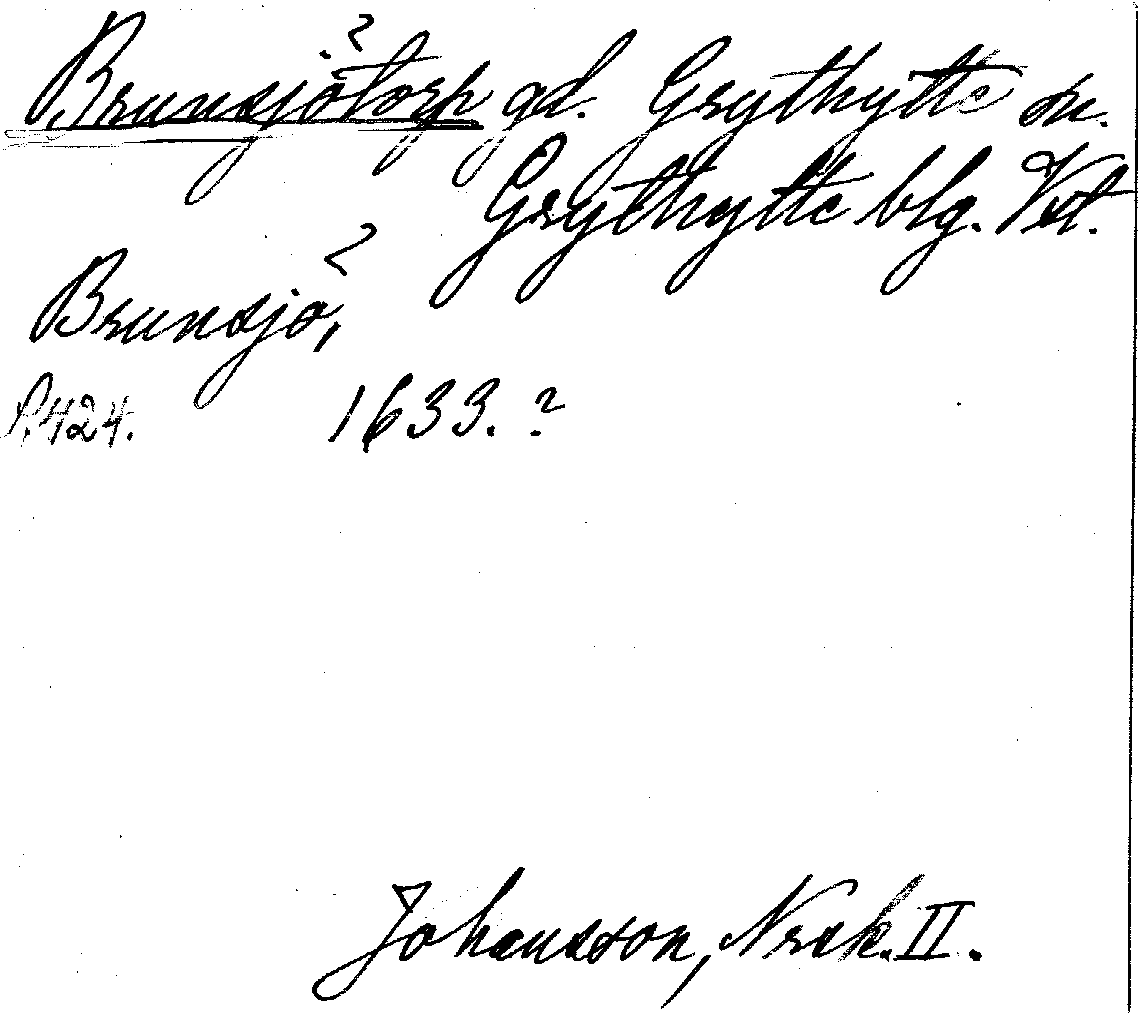 Brunsjötorp gd. Grythytte sn.
Grythytte blg. Vstl.
Brunsjö,
S. 424. 1633.?
Johansson, Norask. II.